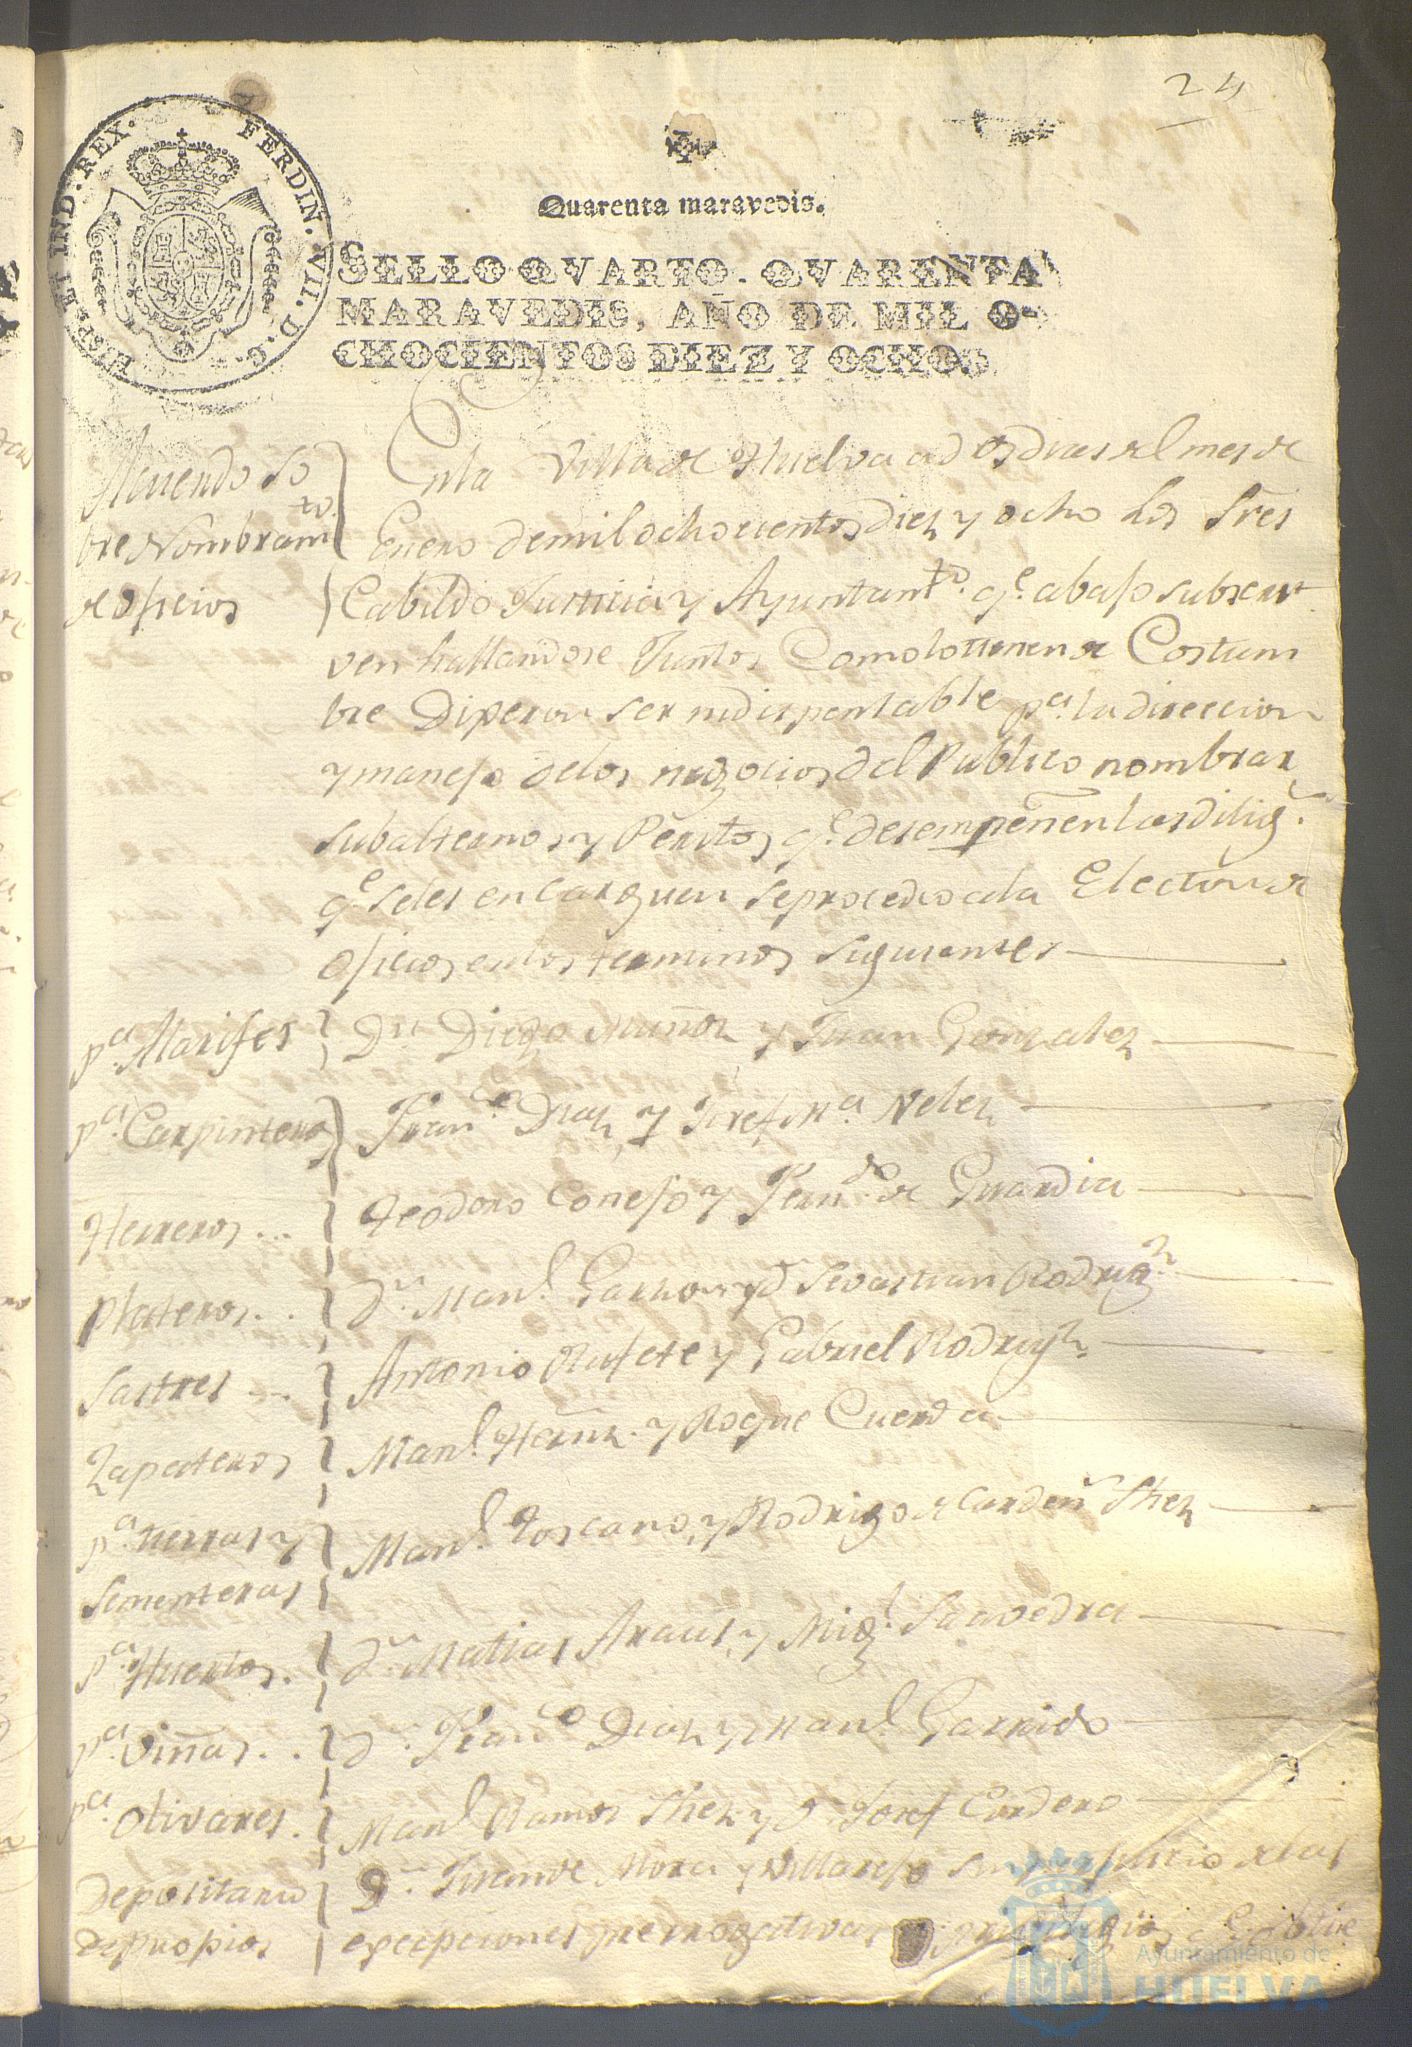 24
HISP. ET IND. REX. FERDIN. VII. D. G.
Quarenta maravedis.
SELLO QVARTO. QVARENTA
MARAVEDIS, AÑO DE MIL O-
CHOCIENTOS DIEZ Y OCHO.
Acuerdo so
bre Nombram.to
de oficios
En la Villa de Huelva a dos dias del mes de
Enero de mil ochocientos diez y ocho los Sres
Cabildo Justicia y Ayuntam.to q.e abajo subscri
ven hallandose Juntos Como lo tienen de Costum
bre Digeron ser indispensable p.a la direccion
y manejo de los negocios del Publico nombrar
subalternos y Peritos q.e desempeñen las dilig.s
q.e se les encarguen se procedio a la Eleccion de
oficios en los terminos siguientes
p.a Alarifes } D.n Diego Muñoz y Juan Gonzalez
p.a Carpinteros } Fran.co Diaz, y Josef M.a Velez
Herreros... } Teodoro Conejo y Fern.do de Guardia
Plateros... } D.n Man.l Garzon y D.n Sevastian Rodrig.z
Sastres... } Antonio Rufete y Gabriel Rodrig.z
Zapateros } Man.l Hernz. y Roque Cuerda
p.a tierras y
Sementeras } Man.l Toscano, y Rodrigo de Carden.s Shez
p.a Huertos. } d.n Matias Araus, y Mig.l Saavedra
p.a Viñas... } d.n Fran.co Diaz y Man.l Garrido
p.a Olivares. } Man.l Ramos Shez y D.n Josef Cordero
Depositario
de propios } D.n Juan de Mora y Villarejo sin perjuicio de las
excepciones prerrogativas y privilegios
Ayuntamiento de
HUELVA